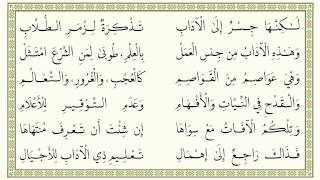 لَكِنَّهَا جِسْرٌ إِلَى الْآدَابِ تَذْكِرَةٌ لِزُمَرِ الطُّلَّابِ
وَهَذِهِ الْآدَابُ مِنْ جِنْسِ الْعَمَلْ بِالْعِلْمِ، طُوبَى لِمَنِ الشَّرْعَ امْتَثَلْ
وَهْيَ عَوَاصِمٌ مِنَ الْقَوَاصِمِ كَالْعُجْبِ، وَالْغُرُورِ، وَالتَّعَالُمِ
وَالْقَدْحِ فِي النِّيَّاتِ وَالْأَفْهَامِ وَعَدَمِ التَّوْقِيرِ لِلْأَعْلَامِ
وَتِلْكُمُ الْآفَاتُ مَعْ سِوَاهَا إِنْ شِئْتَ أَنْ تَعْرِفَ مُنْتَهَاهَا
فَذَاكَ رَاجِعٌ إِلَى إِهْمَالِ تَعْلِيمِ ذِي الْآدَابِ لِلْأَجْيَالِ